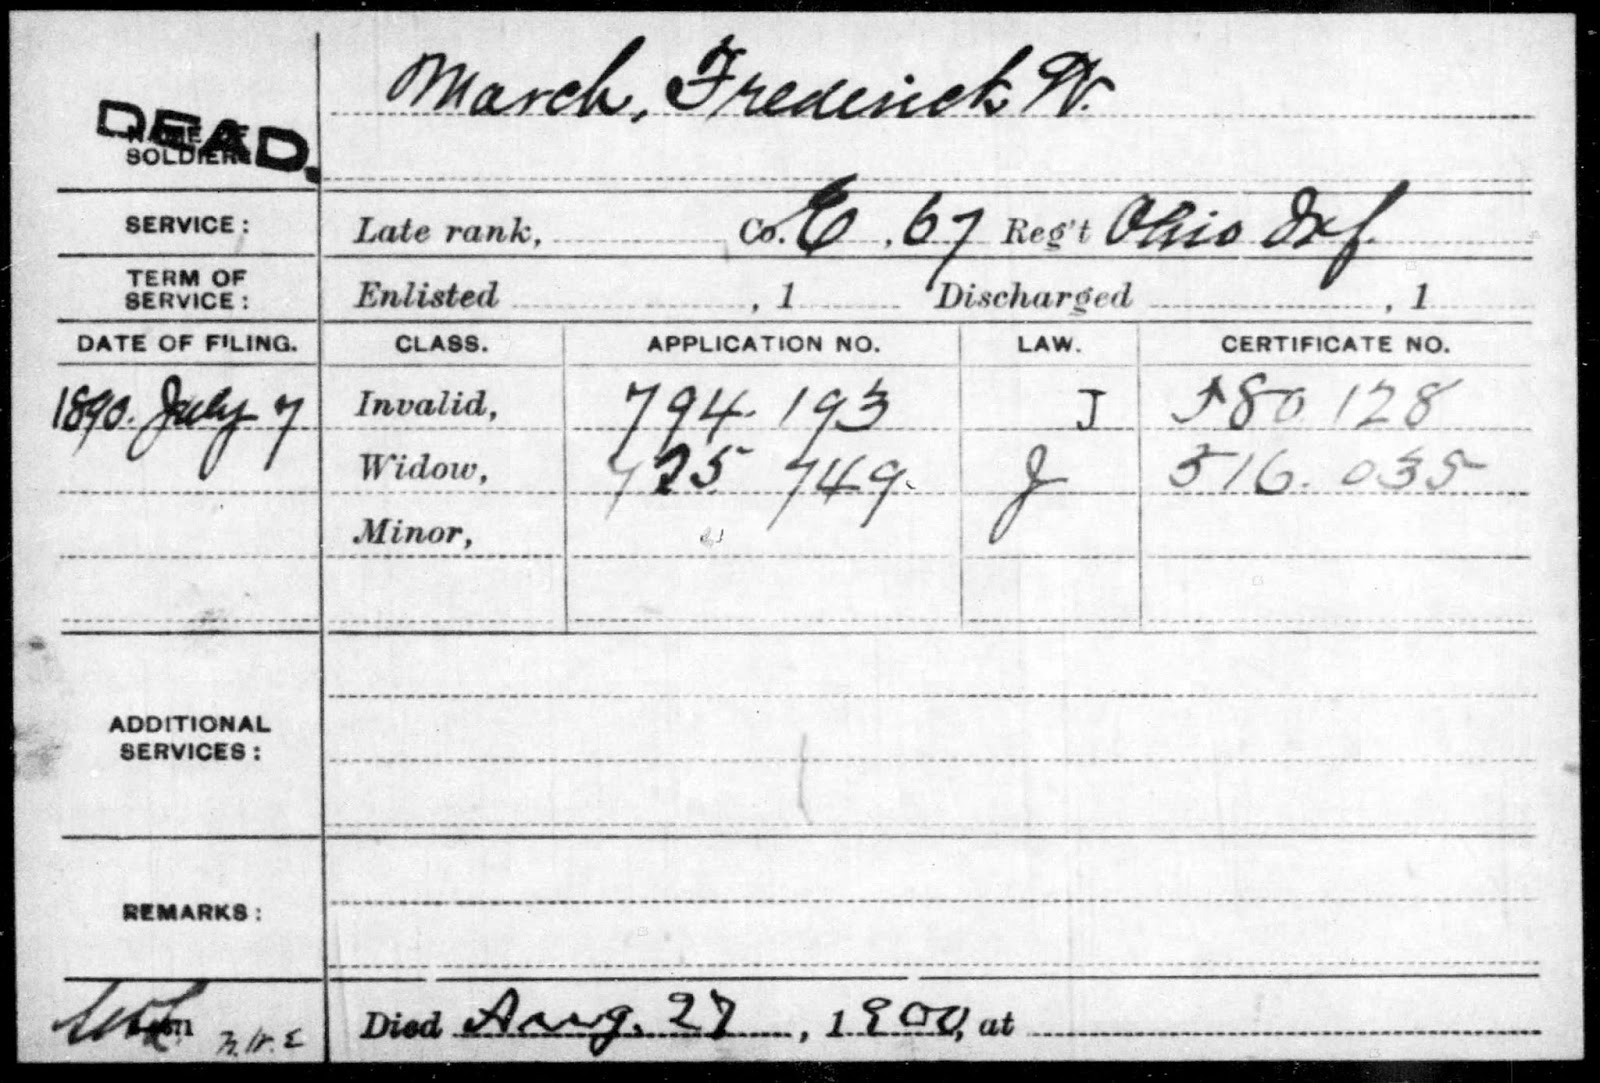 March, Frederick W.
DEAD.
NAME OF
SOLDIER:
SERVICE: Late rank, Co. E, 67 Reg't Ohio Inf.
TERM OF
SERVICE: Enlisted , 1 Discharged , 1
DATE OF FILING. CLASS. APPLICATION NO. LAW. CERTIFICATE NO.
1890. July 7 Invalid, 794.193 J 580.128
Widow, 725.749. J 516.035
Minor,
ADDITIONAL
SERVICES:
REMARKS:
Died Aug. 27, 1900, at